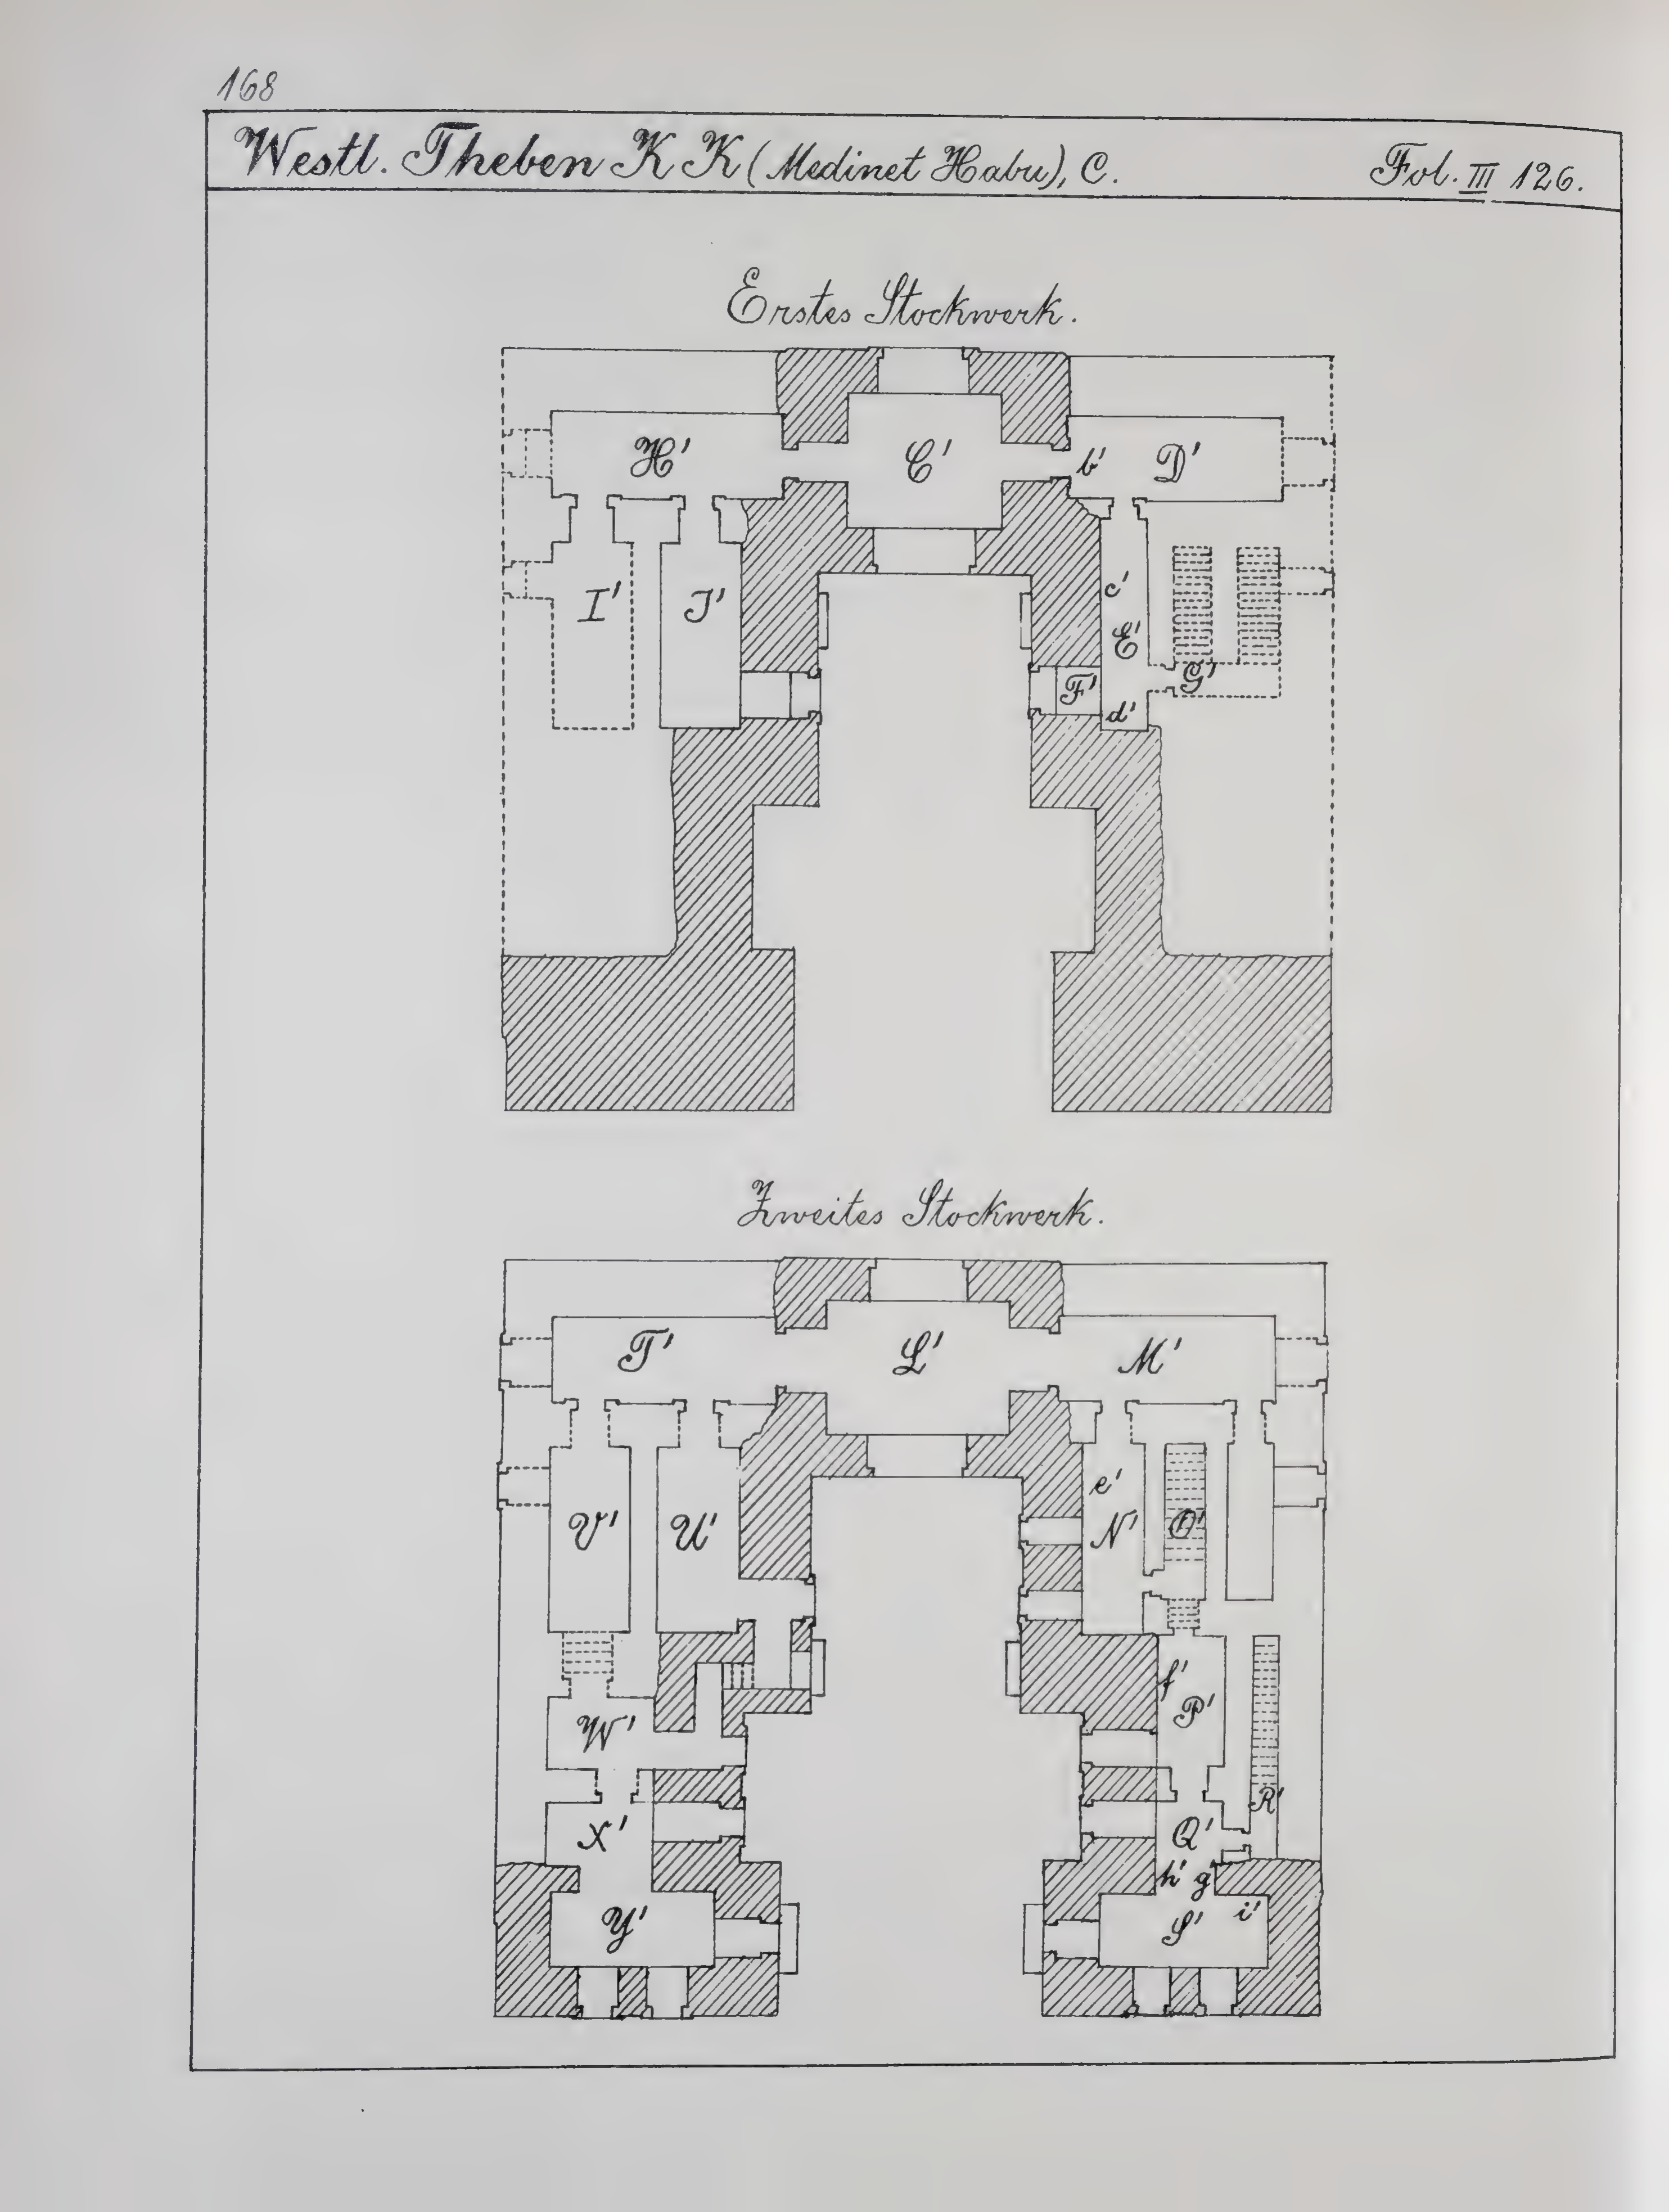 168
Westl. Theben K K (Medinet Habu), C. Fol. III 126.
Erstes Stockwerk.
H' C' b' D'
I' J' c'
E'
F' G'
d'
Zweites Stockwerk.
T' L' M'
e'
V' U' N' O'
f'
W' P'
R'
X' Q'
h' g'
Y' S' i'